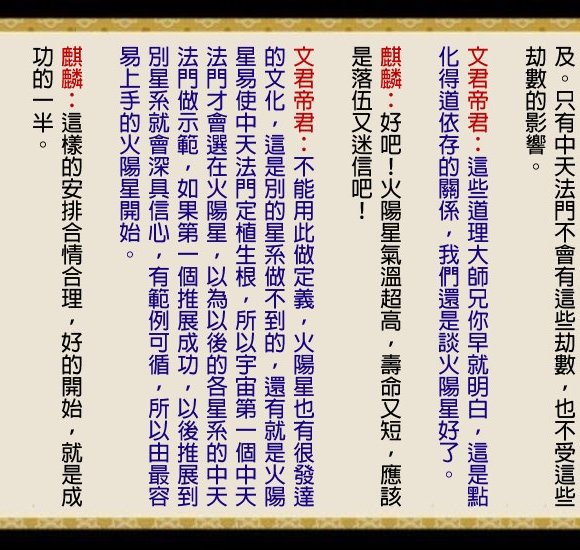 及。只有中天法門不會有這些劫數，也不受這些
劫數的影響。
文君帝君：這些道理大師兄你早就明白，這是點
化得道依存的關係，我們還是談火陽星好了。
麒麟：好吧！火陽星氣溫超高，壽命又短，應該
是落伍又迷信吧！
文君帝君：不能用此做定義，火陽星也有很發達
的文化，這是別的星系做不到的，還有就是火陽
星易使中天法門定植生根，所以宇宙第一個中天
法門才會選在火陽星，以為以後的各星系的中天
法門做示範，如果第一個推展成功，以後推展到
別星系就會深具信心，有範例可循，所以由最容
易上手的火陽星開始。
麒麟：這樣的安排合情合理，好的開始，就是成
功的一半。